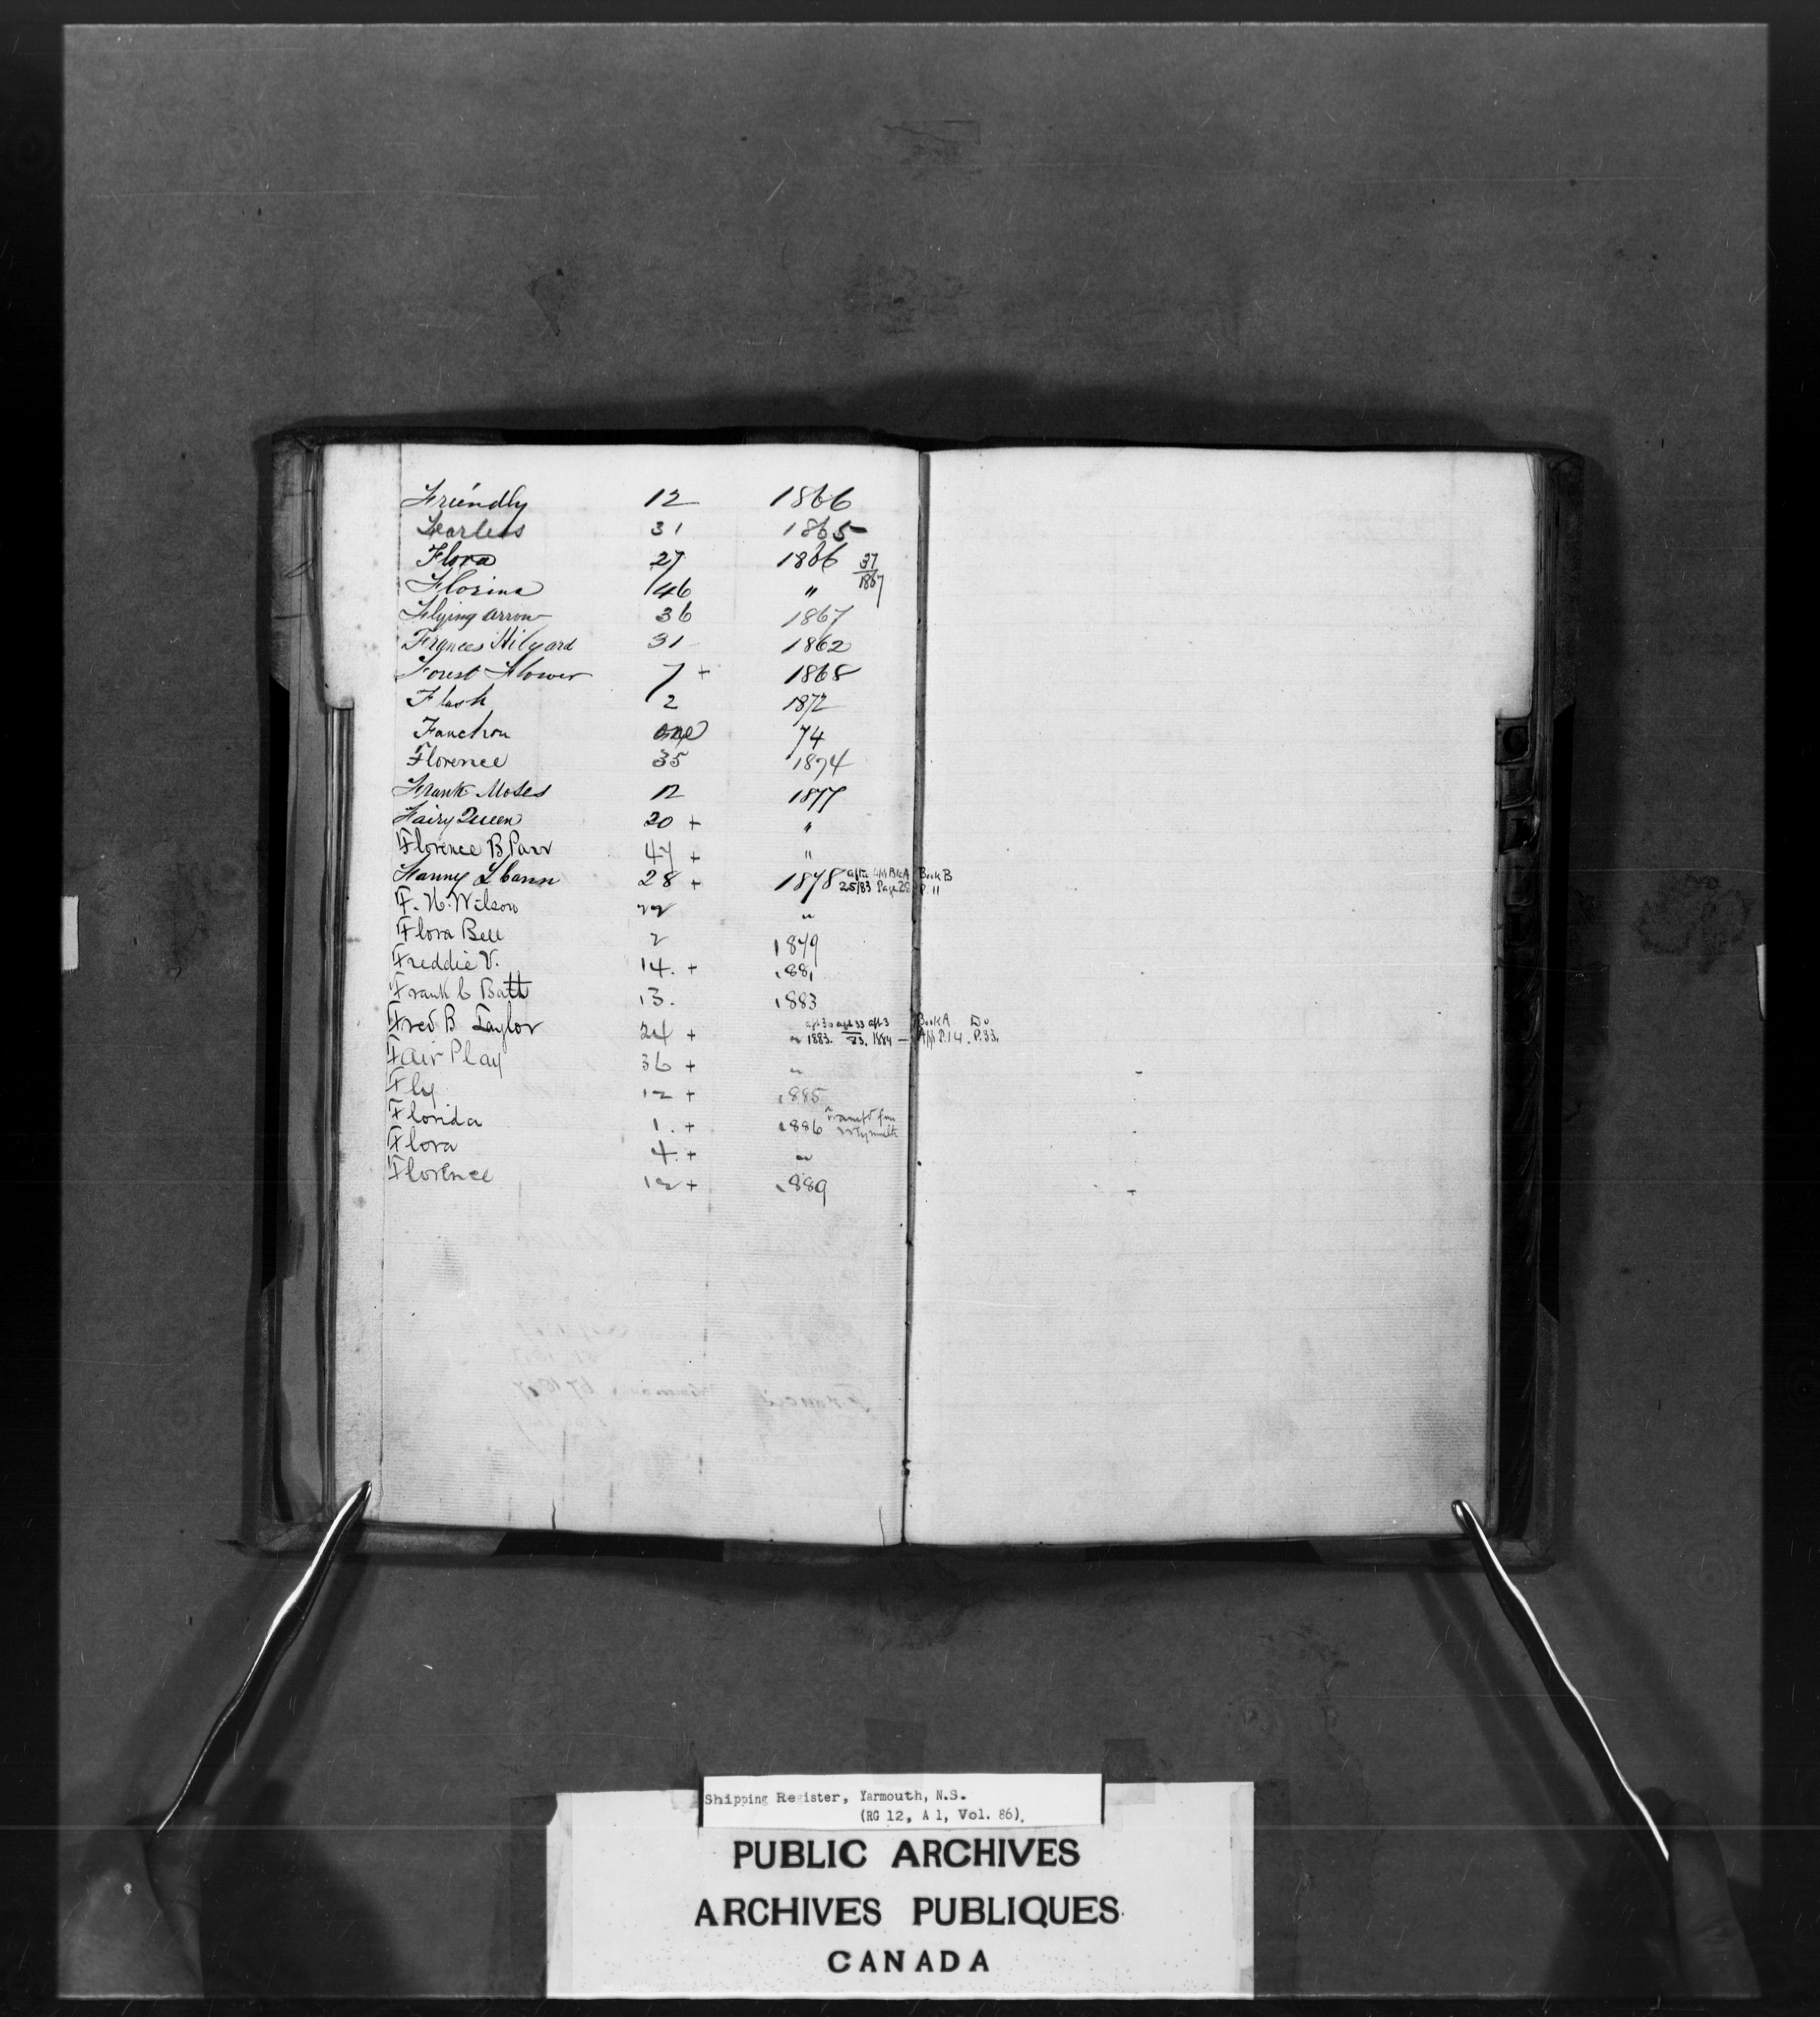 Friendly 12 1866
Fearless 31 1865
Flora 27 1866 37/1867
Florina 46 "
Flying Arrow 36 1867
Frances Hilyard 31 1862
Forest Flower 7 + 1868
Flash 2 1872
Fanchon one 74
Florence 35 1874
Frank Moses 12 1877
Fairy Queen 20 + "
Florence B Parr 47 + "
Fanny L Cann 28 + 1878 25/83 Page 28 Book B P. 11
F. H. Wilson 22 "
Flora Bell 2 1879
Freddie V. 14. + 1881
Frank C Batt 13. 1883
Fred B Taylor 24 + " 1883. 83. 1884 — Book A Do P. 14. P. 33.
Fair Play 36 + "
Fly 12 + 1885
Florida 1. + 1886 Transfd from Weymouth
Flora 4. + "
Florence 12 + 1889
G
Shipping Register, Yarmouth, N.S.
(RG 12, A 1, Vol. 86).
PUBLIC ARCHIVES
ARCHIVES PUBLIQUES
CANADA